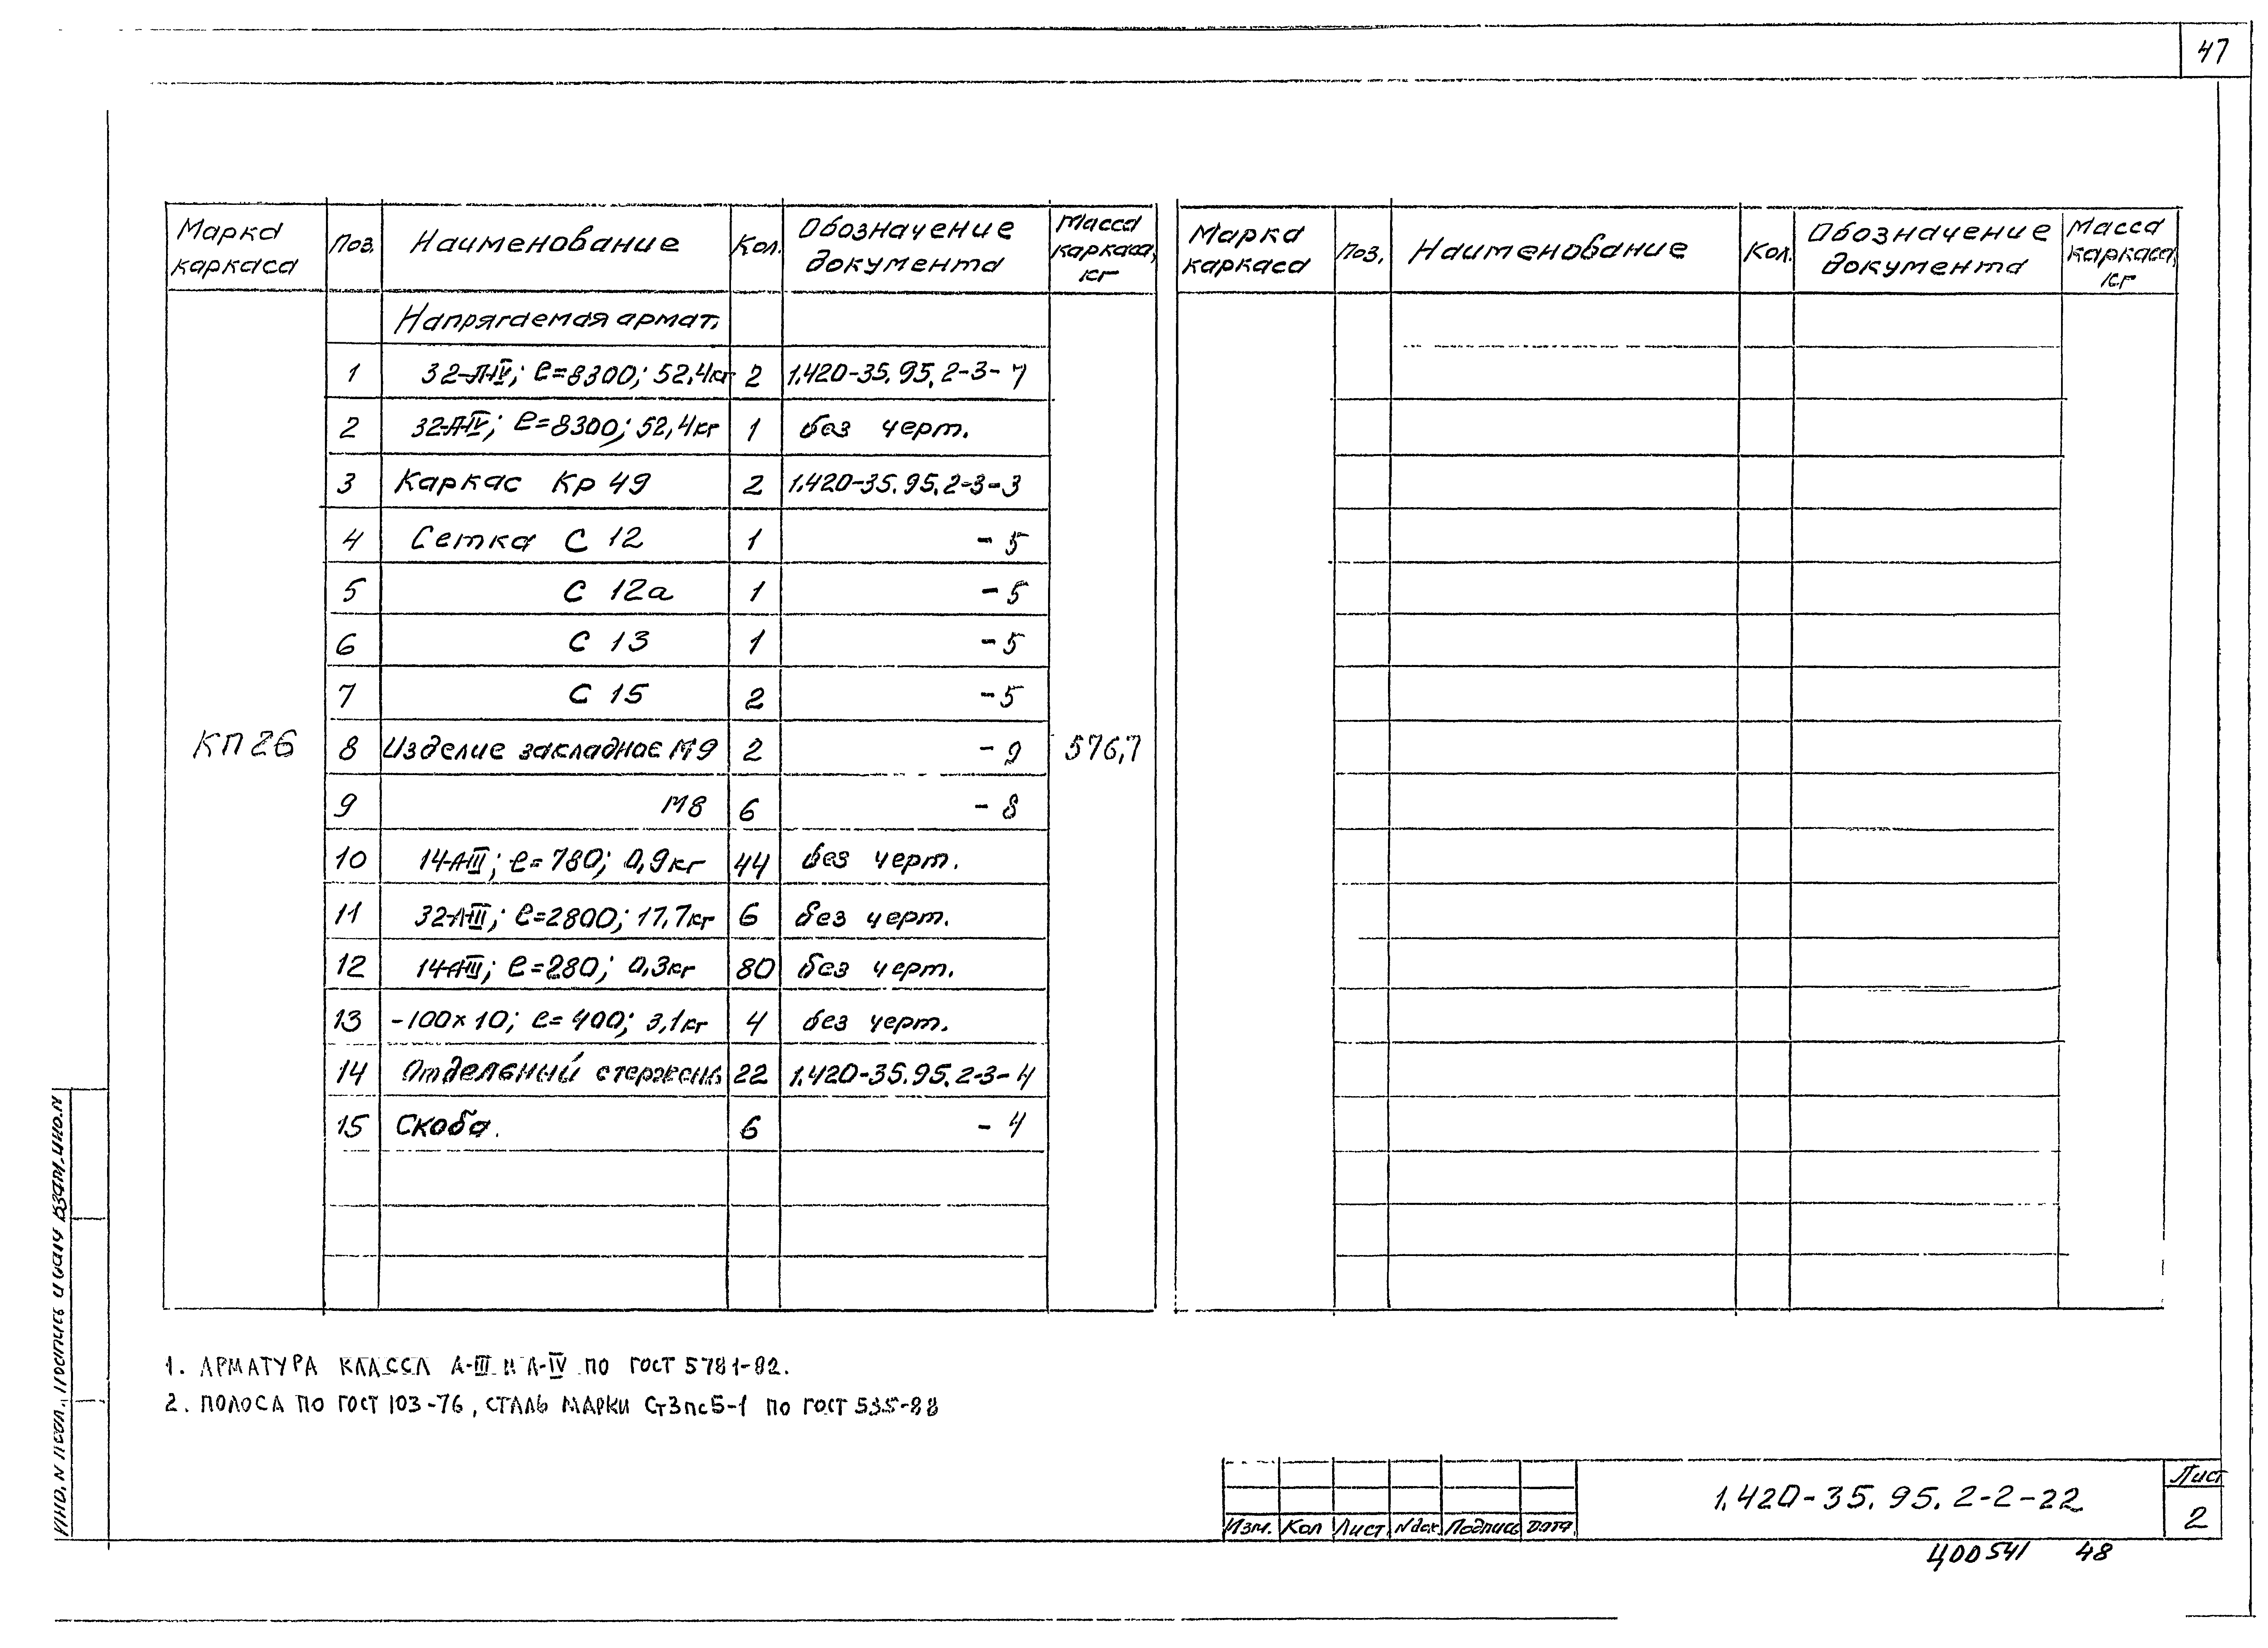 47
Марка каркаса Поз. Наименование Кол. Обозначение документа Масса каркаса, кг
Напрягаемая армат.
1 32-АIV; ℓ=8300; 52,4кг 2 1.420-35.95.2-3-7
2 32-АIV; ℓ=8300; 52,4кг 1 без черт.
3 Каркас Кр 49 2 1.420-35.95.2-3-3
4 Сетка С 12 1 -5
5 С 12а 1 -5
6 С 13 1 -5
7 С 15 2 -5
КП26 8 Изделие закладное М9 2 -9 576,7
9 М8 6 -8
10 14-АIII; ℓ=780; 0,9кг 44 без черт.
11 32-АIII; ℓ=2800; 17,7кг 6 без черт.
12 14-АIII; ℓ=280; 0,3кг 80 без черт.
13 -100×10; ℓ=400; 3,1кг 4 без черт.
14 Отдельный стержень 22 1.420-35.95.2-3-4
15 Скоба. 6 -4
Марка каркаса Поз. Наименование Кол. Обозначение документа Масса каркаса, кг
1. АРМАТУРА КЛАССА А-III И А-IV ПО ГОСТ 5781-82.
2. ПОЛОСА ПО ГОСТ 103-76, СТАЛЬ МАРКИ Ст3пс5-1 ПО ГОСТ 535-88
ИНВ. N подл. Подпись и дата ВЗАМ. ИНВ. N
Изм. Кол Лист Nдок Подпись Дата
1.420-35.95.2-2-22
Лист
2
Ц00541 48